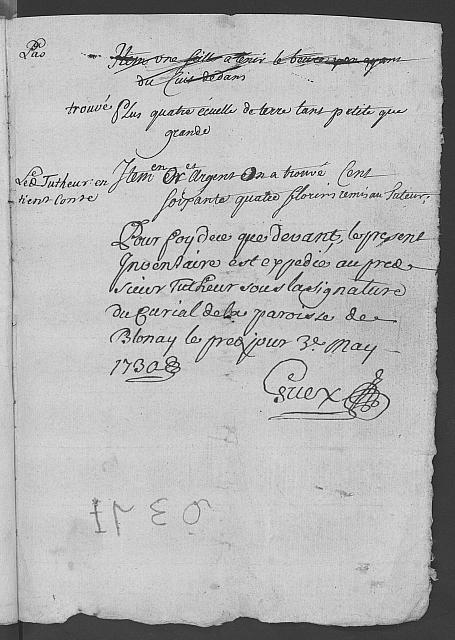 Pas
Item une seille a tenir le beurre y en ayant
du Cuit dedans
trouvé Plus quatre écuelle de terre tant petite que
grande
Led Tutheur en
tient Conte
Item en Or et Argent On a trouvé Cent
soixante quatre florins remis au Tuteur,
Pour foy de ce que devant, le present
Inventaire est expedié au pred
sieur Tutheur sous la signature
du Curial de la paroisse de
Blonay le pred jour 3e May
1730
Guex